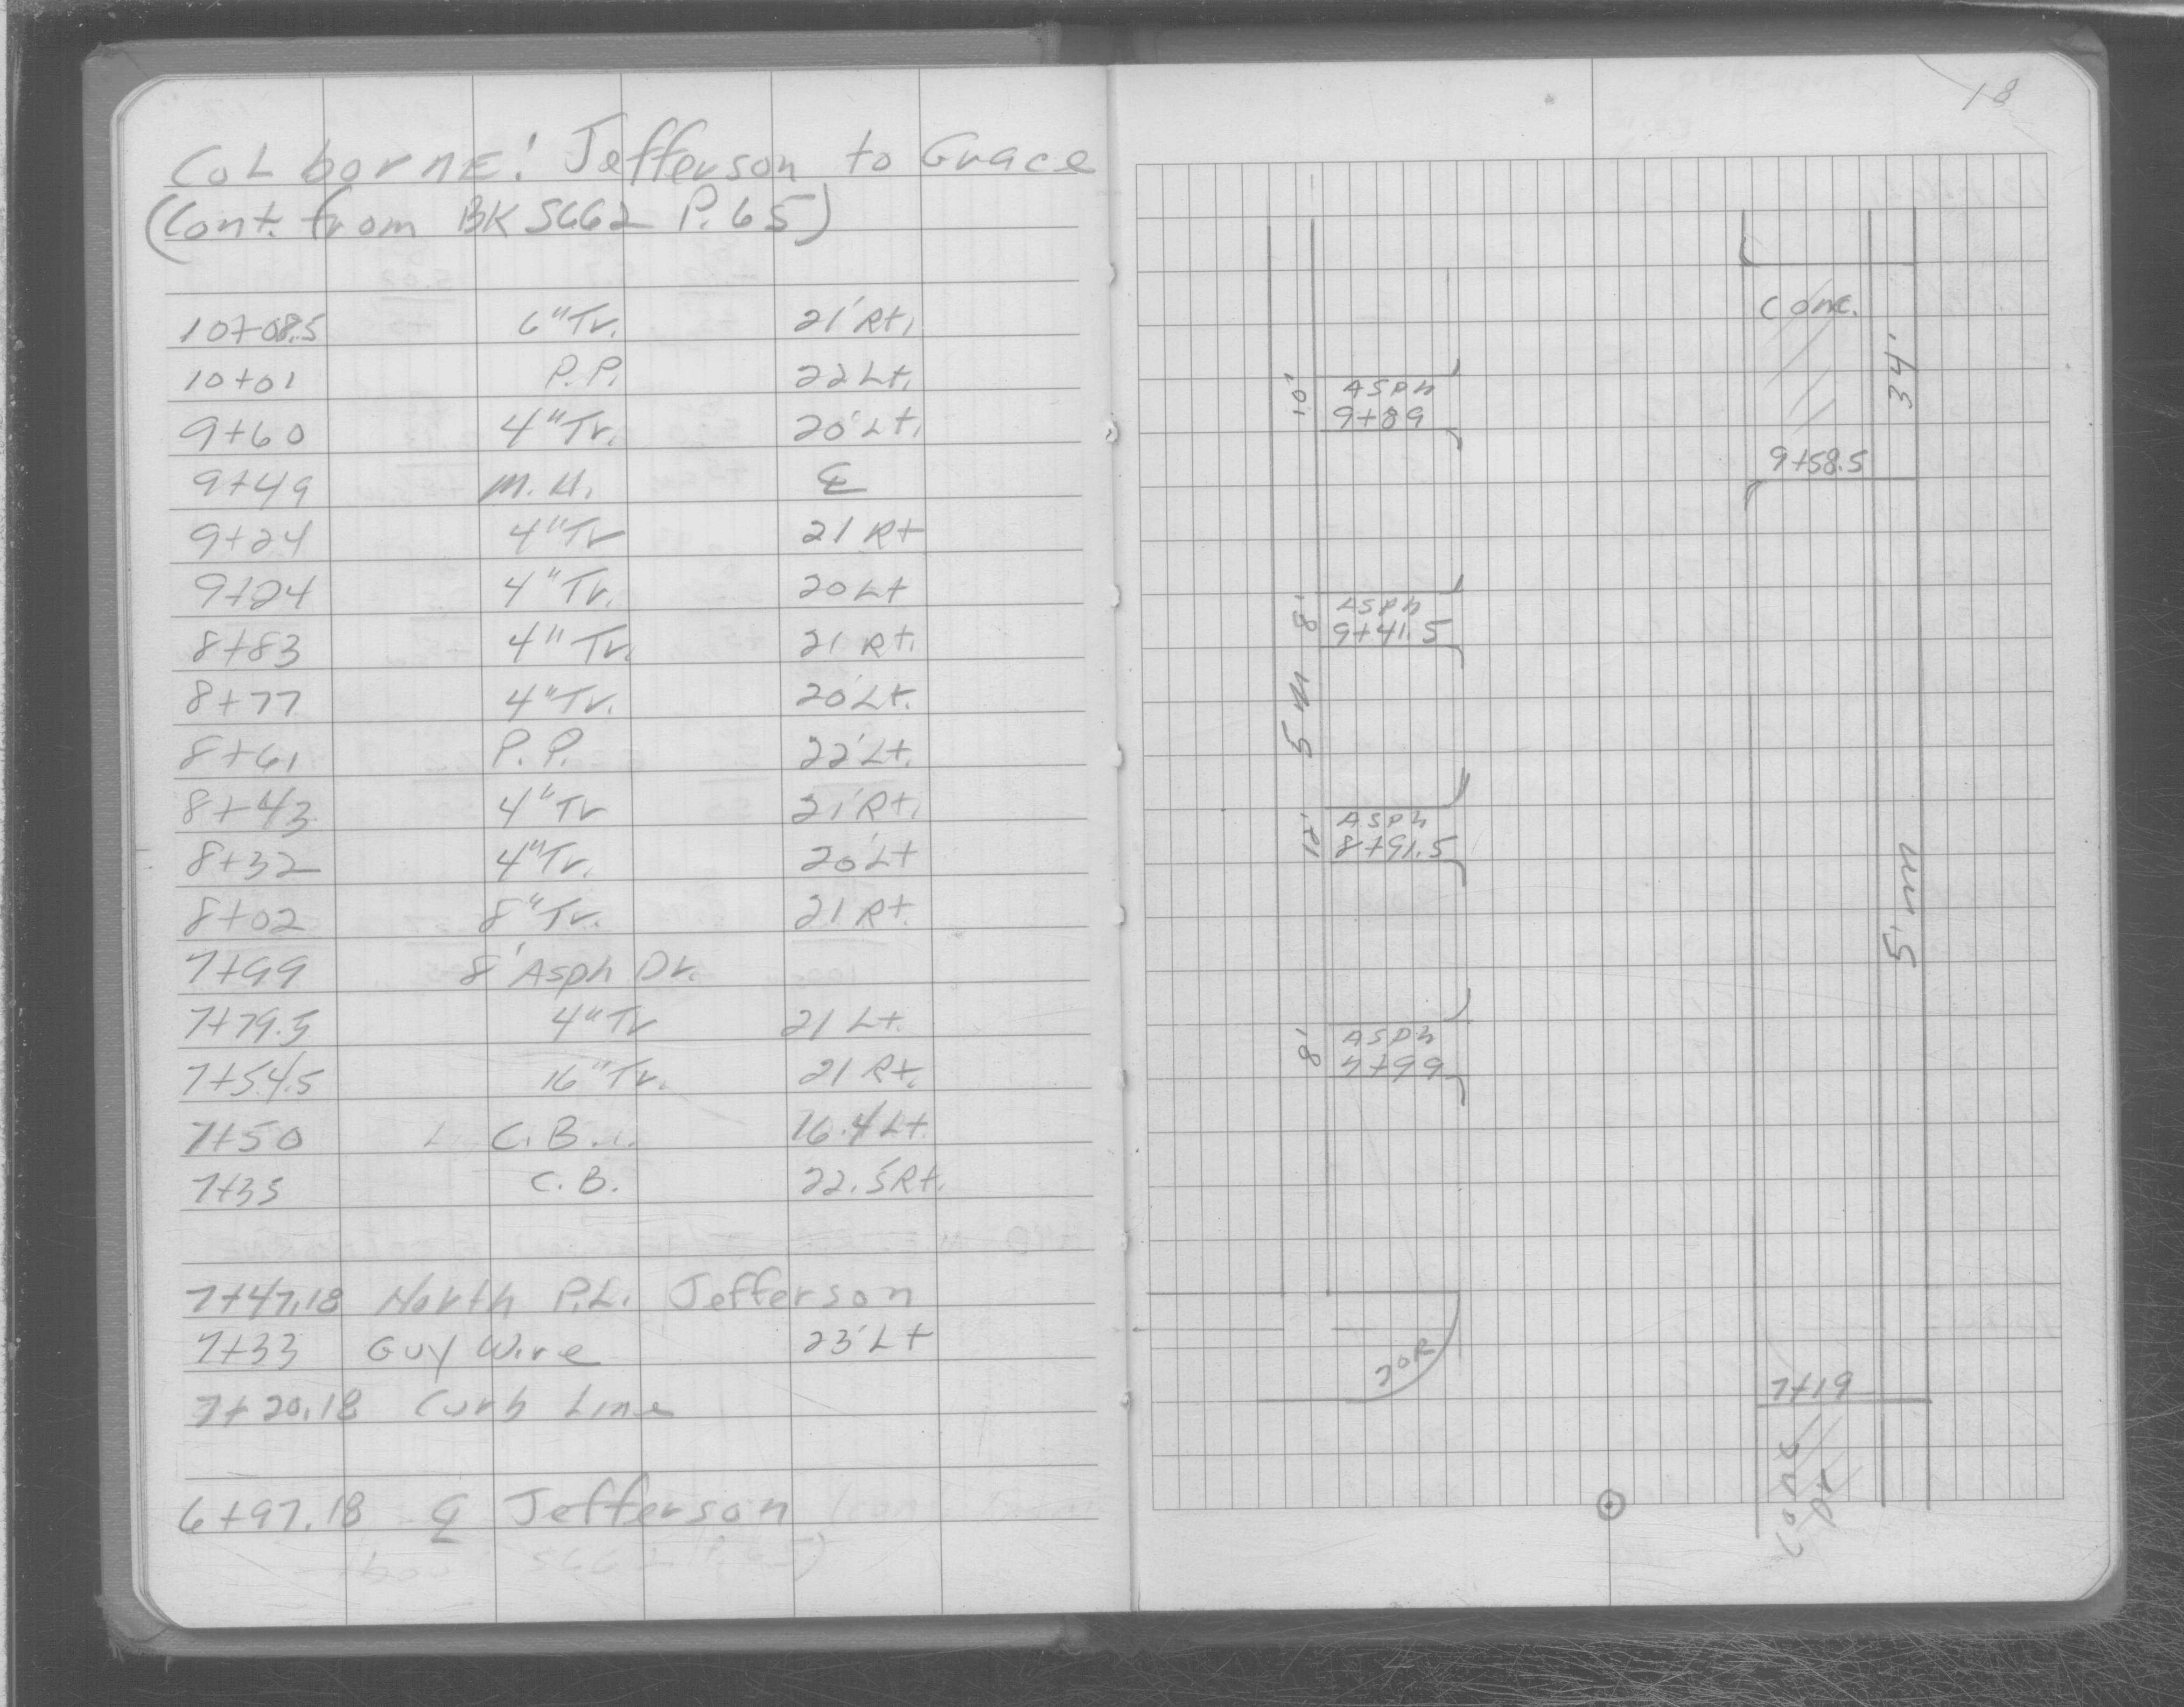 ColbornE: Jefferson to Grace
(Cont. from BK 5662 P. 65)
10+08.5 6" Tr. 21' Rt.
10+01 P.P. 22 Lt.
9+60 4" Tr. 20' Lt.
9+49 M.H. ℄
9+24 4" Tr 21 Rt
9+24 4" Tr. 20 Lt
8+83 4" Tr. 21 Rt.
8+77 4" Tr. 20' Lt.
8+61 P.P. 22' Lt.
8+43 4" Tr 21' Rt.
8+32 4" Tr. 20' Lt
8+02 8" Tr. 21 Rt.
7+99 8' Asph Dr.
7+79.5 4" Tr 21 Lt.
7+54.5 16" Tr. 21 Rt.
7+50 C.B. 16.4 Lt.
7+35 C.B. 22.5 Rt.
7+47.18 North P.L. Jefferson
7+33 Guy Wire 23' Lt
7+20.18 Curb Line
6+97.18 ℄ Jefferson
18
Conc.
34'
9+58.5
10'
Asph
9+89
8'
Asph
9+41.5
5 W
12'
Asph
8+91.5
5' W
8'
Asph
7+99
20R
7+19
Conc
Dr